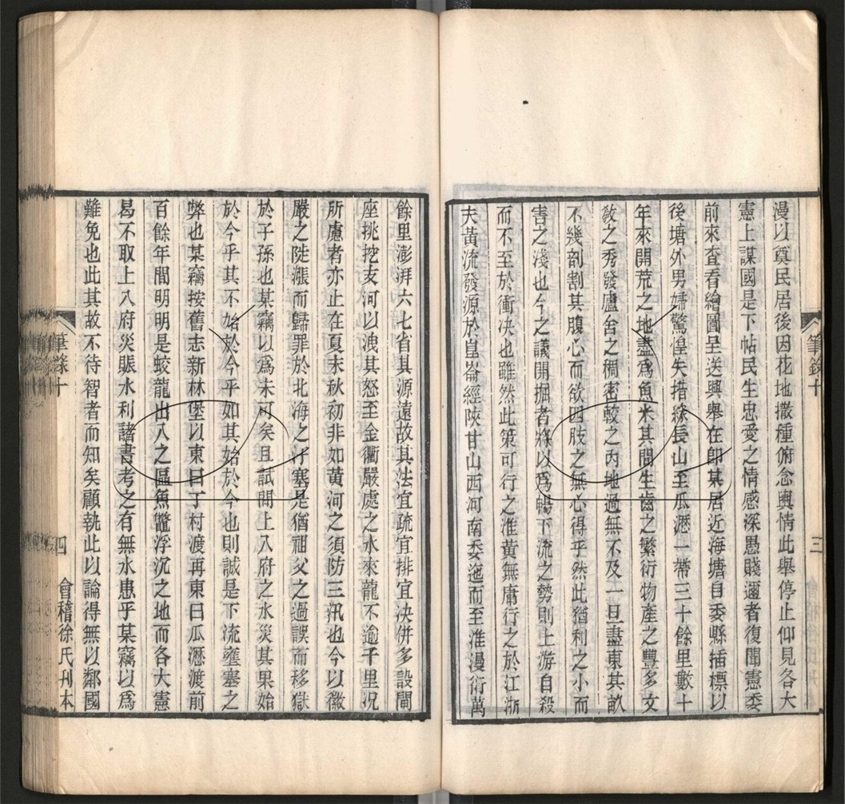 漫以奠民居後因花地撒種俯念輿情此舉停止仰見各大
憲上謀國是下帖民生忠愛之情感深愚賤邇者復聞憲委
前來查看繪圖呈送興舉在即某居近海塘自委縣插標以
後塘外男婦驚惶失措緣長山至瓜瀝一帶三十餘里數十
年來開荒之地盡爲魚米其間生齒之繁衍物產之豐多文
教之秀發廬舍之稠密較之內地過無不及一旦盡東其畝
不幾剖割其腹心而欲四肢之無心得乎然此猶利之小而
害之淺也今之議開掘者將以爲暢下流之勢則上游自殺
而不至於衝决也雖然此策可行之淮黃無庸行之於江浙
夫黃流發源於崑崙經陝甘山西河南委迤而至淮漫衍萬
筆錄十
三
餘里澎湃六七省其源遠故其法宜疏宜排宜决併多設閘
座挑挖支河以洩其怒至金衢嚴處之水來龍不逾千里况
所慮者亦止在夏末秋初非如黃河之須防三汛也今以徽
嚴之陡漲而歸罪於北海之汙塞是猶祖父之過誤而移獄
於子孫也某竊以爲未可矣且試問上八府之水災其果始
於今乎其不始於今乎如其始於今也則誠是下流壅塞之
弊也某竊按舊志新林堡以東曰丁村渡再東曰瓜瀝渡前
百餘年間明明是蛟龍出入之區魚鼈浮沉之地而各大憲
曷不取上八府災賑水利諸書考之有無水患乎某竊以爲
難免也此其故不待智者而知矣顧執此以論得無以鄰國
筆錄十
四
會稽徐氏刊本